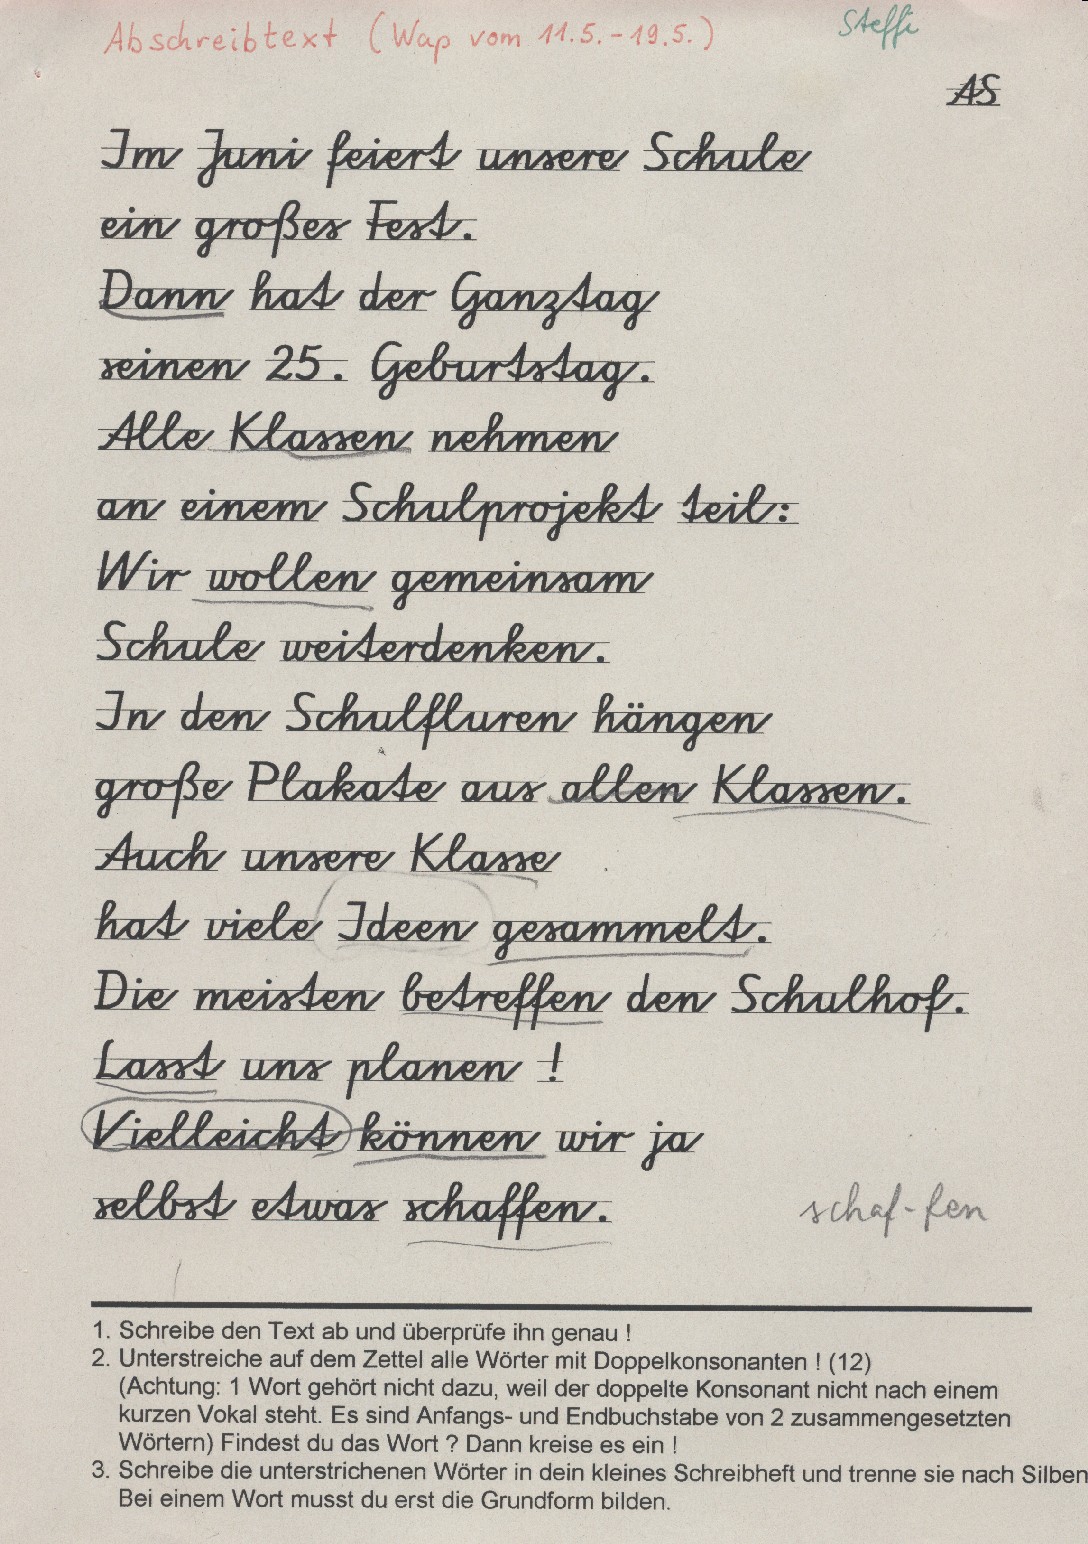 Abschreibtext (Wap vom 11.5.-19.5.)
Steffi
AS
Im Juni feiert unsere Schule
ein großes Fest.
Dann hat der Ganztag
seinen 25. Geburtstag.
Alle Klassen nehmen
an einem Schulprojekt teil:
Wir wollen gemeinsam
Schule weiterdenken.
In den Schulfluren hängen
große Plakate aus allen Klassen.
Auch unsere Klasse
hat viele Ideen gesammelt.
Die meisten betreffen den Schulhof.
Lasst uns planen !
Vielleicht können wir ja
selbst etwas schaffen.
schaf-fen
1. Schreibe den Text ab und überprüfe ihn genau !
2. Unterstreiche auf dem Zettel alle Wörter mit Doppelkonsonanten ! (12)
(Achtung: 1 Wort gehört nicht dazu, weil der doppelte Konsonant nicht nach einem
kurzen Vokal steht. Es sind Anfangs- und Endbuchstabe von 2 zusammengesetzten
Wörtern) Findest du das Wort ? Dann kreise es ein !
3. Schreibe die unterstrichenen Wörter in dein kleines Schreibheft und trenne sie nach Silben
Bei einem Wort musst du erst die Grundform bilden.